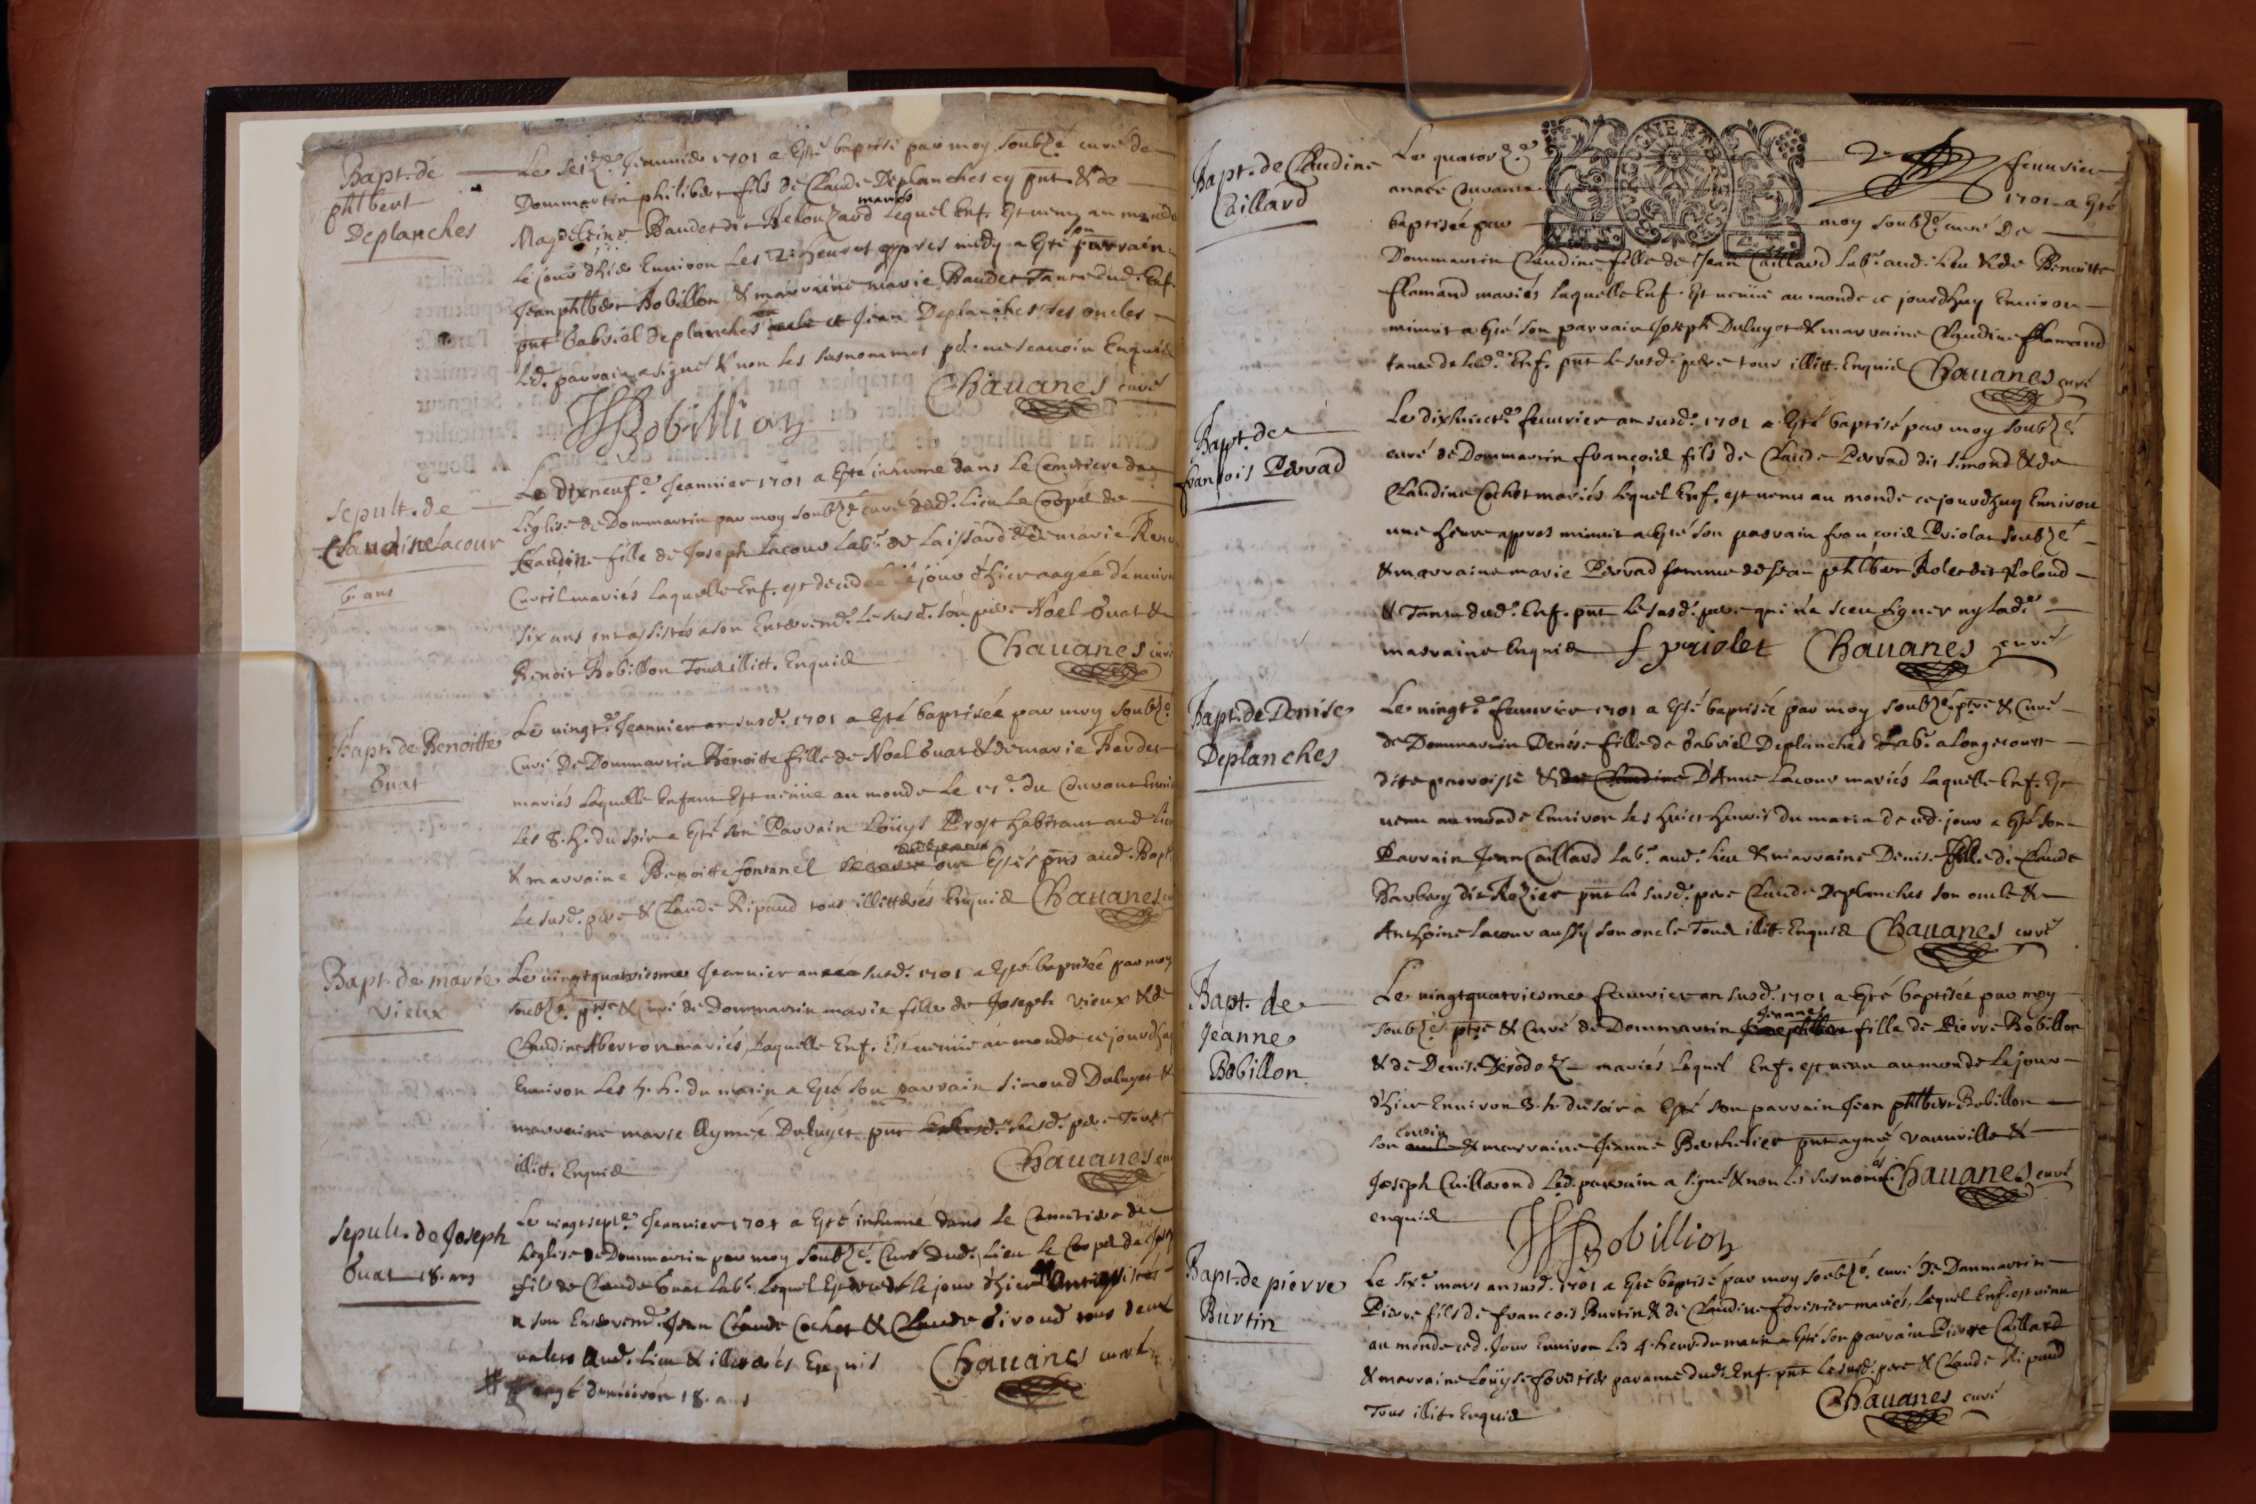 Bapt. de
phlbert
Deplanches
Le seize Jeanvier 1701 a esté baptisé par moy soubzé curé de
Dommartin philibert fils de Claude Deplanches cy pnt & de
mariés
Magdeleine Baudet dit Relouzard lequel Enf. est venu au monde
le jour d'hier Environ les 2 heures appres midy a esté son parrain
Jean phlbert Bobillon & marraine marie Baudet Tante dud. Enf.
pnt Gabriel deplanches et Jean Deplanches ses oncles
Led. parrain a signé & non les susnommes p. ne scavoir Enquis
Chauanes curé
JPBobillion
Sepult. de
Claudine Lacour
6. ans
Le dixneuf.e Jeanvier 1701 a esté inhumé dans Le Cemitiere de
L'église de Dommartin par moy soubzé curé dud. lieu Le Corps de
Claudine fille de Joseph Lacour Lab. de Laissard & de marie
Curtil mariés laquelle Enf. est decedée le jour d'hier aagée d'environ
six ans ont assistés a son Enterrem. Le susd. son pere Noel Guat &
Benoit Bobillon Tous illitt. Enquis
Chauanes curé
Bapt. de Benoitte
Guat
Le vingt.e Jeanvier an susd. 1701 a esté baptisée par moy soubzé
Curé De Dommartin Benoitte fille de Noel Guat & de marie
mariés Laquelle Enfant est venüe au monde Le du Courant
Les 8. h. du soir a esté son Parrain Louys Prost habitant aud lieu
& marraine Benoitte fontanel ont estés pns aud. Bapt.
Le susd. pere & Claude Ripaud tous illitterés Enquis Chauanes
Bapt. de marie
vieux
Le vingtquatriesme Jeanvier année susd. 1701 a esté baptisée par moy
soubzé ptre & Curé de Dommartin marie fille de Joseph vieux & de
Claudine mariés, laquelle Enf. est venüe au monde ce jourd'huy
Environ Les h. du matin a esté son parrain Simond Duluyer &
marraine marie Aymée Duluyer pnt susd. pere Tous
illitt. Enquis
Chauanes
Sepult. de Joseph
Guat 18. ans
Le vingtsept.e Jeanvier 1701 a esté inhumé dans Le Cemitiere de
Leglise de Dommartin par moy soubzé. Curé dud. Lieu Le Corps de
fils de Claude Guat Lab. Lequel est decedé le jour d'hier
a son Enterrem. Jean Claude Cochet & Claude Giroud tous deux
valets aud. lieu & illiterés Enquis
Chauanes curé
aagé d'environ 18. ans
Bapt. de Claudine
Caillard
Le quatorze feuvrier
année Courante 1701 a esté
baptisée par moy soubzé curé De
GENERA
Dommartin Claudine fille de Jean Caillard Lab. aud. lieu & de Benoitte
flamand mariés laquelle Enf. est venüe au monde ce jourd'huy Environ
minuit a esté son parrain Joseph Duluyer & marraine Claudine flamand
tante de lad. Enf. pnt le susd. pere tous illitt. Enquis Chauanes curé
Bapt. de
françois Perrad
Le dixhuict.e feuvrier an susd. 1701 a esté baptisé par moy soubzé
curé de Dommartin françois fils de Claude Perrad dit simond & de
Claudine Cochet mariés lequel Enf. est venu au monde ce jourdhuy Environ
une heure appres minuit a esté son parrain françois Priolat soubzé
& marraine marie Perrad femme de Jean phlbert
& Tante dud. Enf. pnt Le susd. pere qui n'a sceu signer ny lad.
marraine Enquis f priolet Chauanes curé
Bapt. de Denise
Deplanches
Le vingt.e feuvrier 1701 a esté baptisée par moy soubzé ptre & Curé
de Dommartin Denise fille de Gabriel Deplanches Lab. a Longecourt
dite parroisse & de Claudine D'Anne Lacour mariés laquelle Enf. est
venu au monde Environ les huict heures du matin de ced. jour a esté son
Parrain Jean Caillard Lab. aud. lieu & marraine Denise fille de Claude
Barberÿ dit Rozier pnt le susd. pere Claude Deplanches son oncle &
Anthoine Lacour aussy son oncle Tous illitt. Enquis Chauanes curé
Bapt. de
Jeanne
Bobillon
Le vingtquatriesme feuvrier an susd. 1701 a esté baptisée par moy
Jeanne
soubzé ptre & Curé de Dommartin fille de Pierre Bobillon
& de Denise mariés lequel Enf. est venu au monde le jour
d'hier Environ 3. h. du soir a esté son parrain Jean phlbert Bobillon
cousin
son & marraine Jeanne Berthelier pnt aymé vauurille &
Joseph Caillerond Led. parrain a signé & non les susnomés Chauanes curé
enquis
JPBobillion
Bapt. de pierre
Burtin
Le six.e mars an susd. 1701 a esté baptisé par moy soubzé. curé de Dommartin
Pierre fils de francois Burtin & de Claudine forestier mariés, lequel Enf. est venu
au monde ced. jour Environ les 4. heures du matin a esté son parrain Pierre Caillard
& marraine Louyse forestier dud. Enf. pnt le susd. pere & Claude Ripaud
Tous illitt. Enquis
Chauanes curé